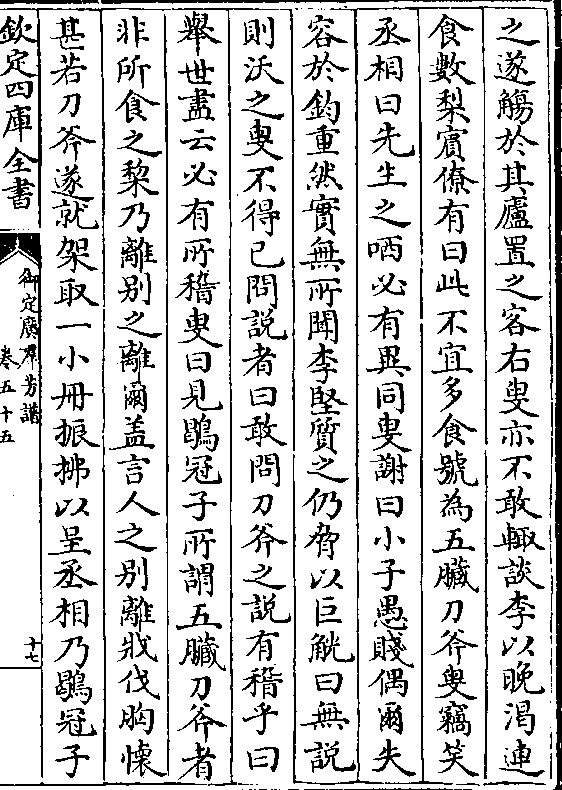 之遂觴於其廬置之客右叟亦不敢輙談李以晚渴連
食數梨賓僚有曰此不宜多食號為五臟刀斧叟竊笑
丞相曰先生之哂必有異同叟謝曰小子愚賤偶爾失
容於鈞重然實無所聞李堅質之仍脅以巨觥曰無說
則沃之叟不得已問說者曰敢問刀斧之說有稽乎曰
舉世盡云必有所稽叟曰見鶡冠子所謂五臟刀斧者
非所食之棃乃離别之離爾盖言人之别離戕伐胸懷
甚若刀斧遂就架取一小冊振拂以呈丞相乃鶡冠子
欽定四庫全書
御定廣羣芳譜
卷五十五
十七